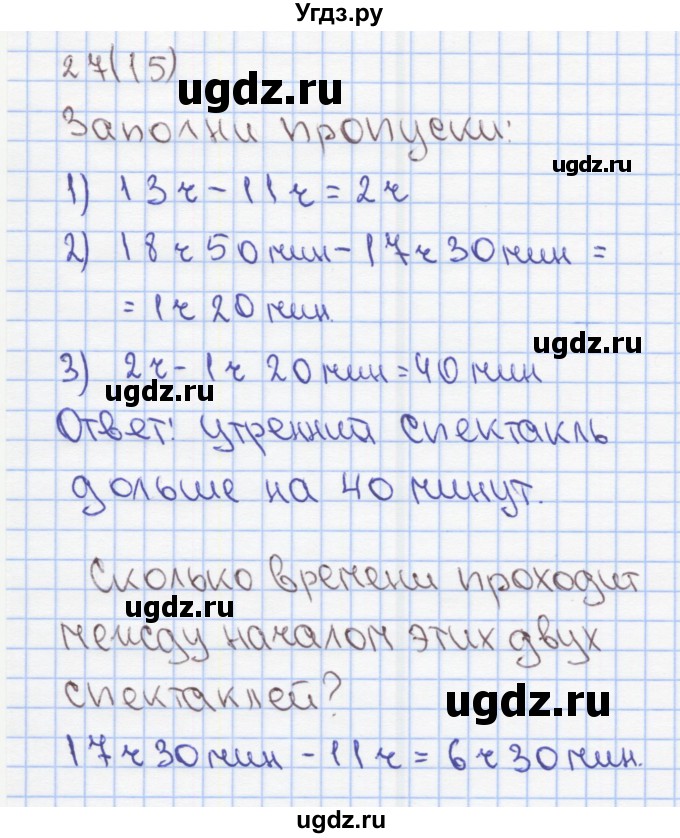 Угдз.ру
27(15)
ugdz.ru
Заполни пропуски:
ugdz.ru
1) 13ч-11ч=2ч
2) 18ч50мин-17ч30мин=
=1ч20мин.
ugdz.ru
3) 2ч-1ч20мин=40мин
ugdz.ru
Ответ: утренний спектакль
дольше на 40 минут.
Сколько времени проходит
ugdz.ru
между началом этих двух
спектаклей?
ugdz.ru
17ч30мин-11ч=6ч30мин.
ugdz.ru